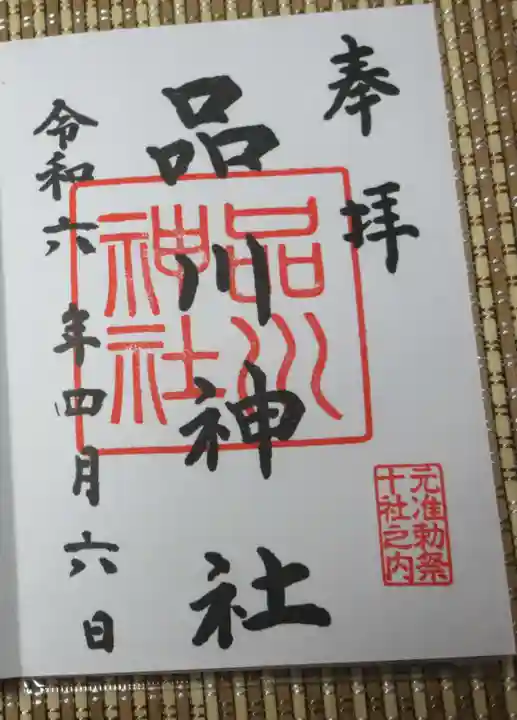 奉拝
品川神社
品川
神社
元准勅祭
十社之内
令和六年四月六日